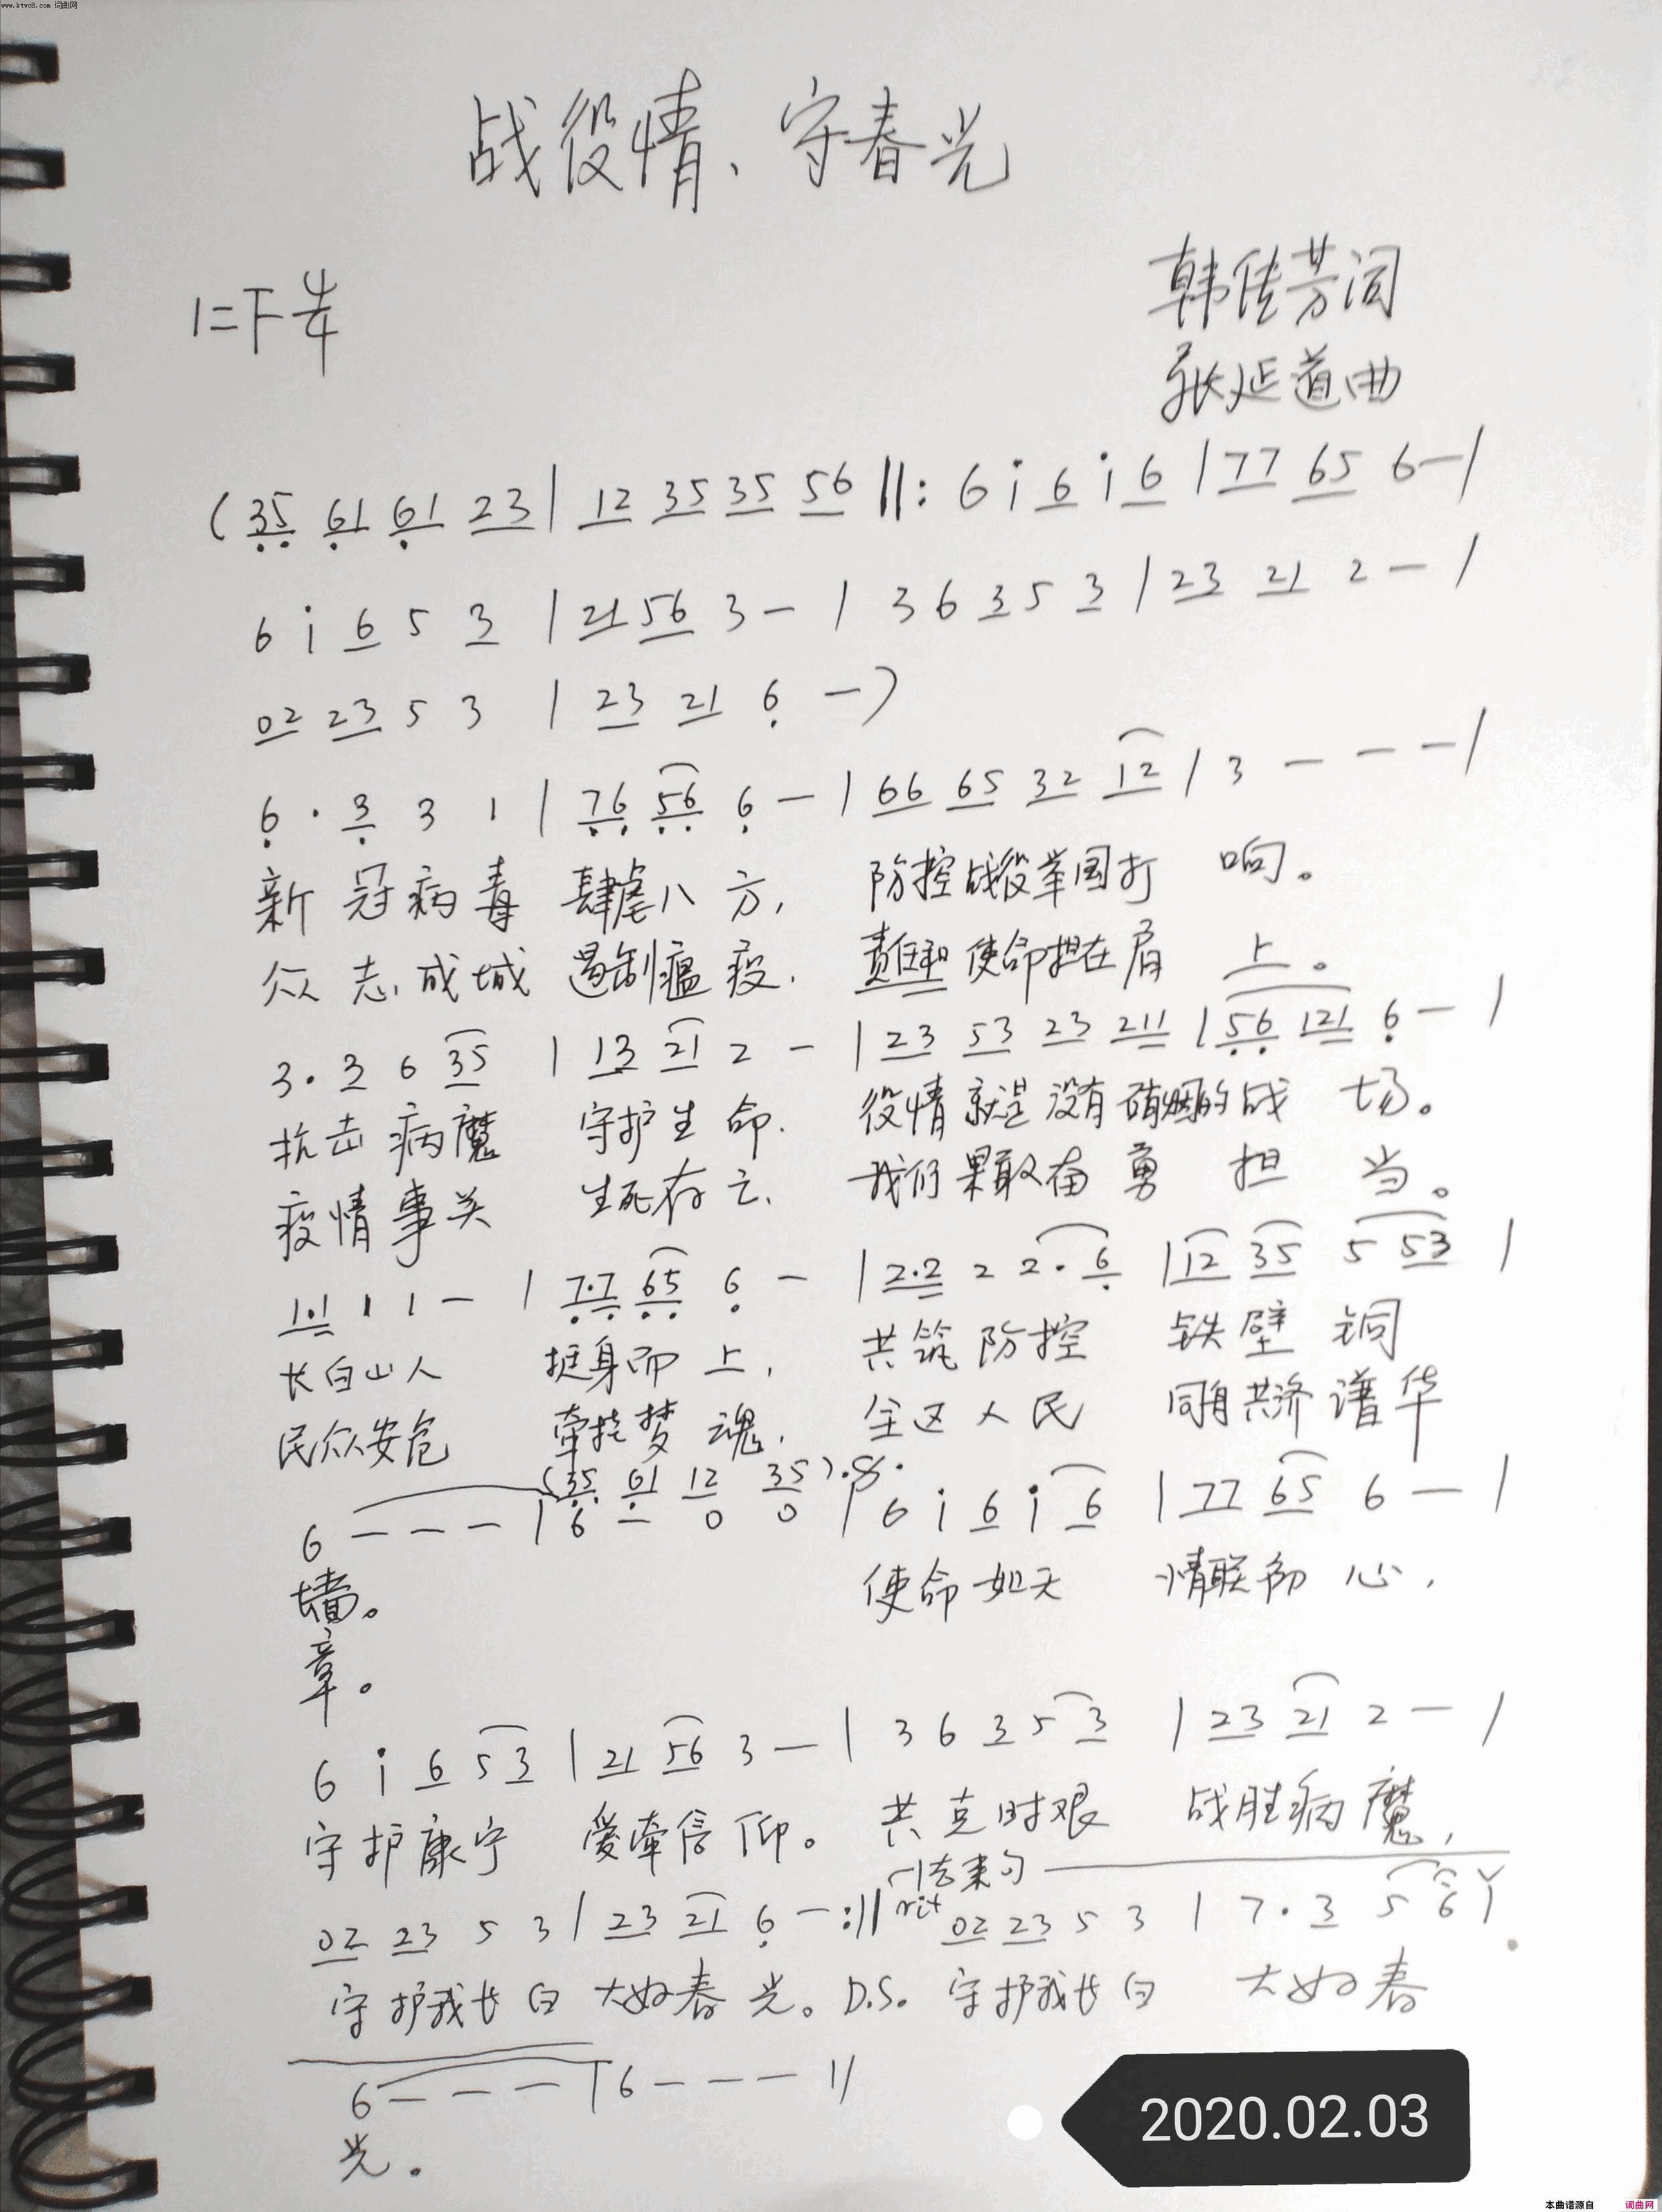 www.ktvc8.com 词曲网
战役情、守春光
1=F 4/4
韩传芳词
张延道曲
(35 61 61 23| 12 35 35 56 ||: 6 i 6 i 6 | 77 65 6—|
6 i 6 5 3 | 21 56 3 — | 3 6 3 5 3 | 23 21 2 — |
02 23 5 3 | 23 21 6 —)
6 · 3 3 1 | 76 56 6 — | 66 65 32 12 | 3 — — — |
新冠病毒 肆虐八方, 防控战役举国打 响。
众志成城 遏制瘟疫. 责任和使命担在肩 上。
3 · 3 6 35 | 13 21 2 — | 23 53 23 211 | 56 121 6 — |
抗击病魔 守护生命. 役情就是没有硝烟的战 场。
疫情事关 生死存亡. 我们果敢奋勇 担 当。
1·1 1 1 — | 7·7 65 6 — | 2·2 2 2 · 6 | 12 35 5 53 |
长白山人 挺身而上, 共筑防控 铁壁铜
民众安危 牵挂梦魂. 全区人民 同舟共济谱华
(35 61 12 35)
6 — — — | 6 — 0 0 | 6 i 6 i 6 | 77 65 6 — |
墙。 使命如天 情联初心,
章。
6 i 6 5 3 | 21 56 3 — | 3 6 3 5 3 | 23 21 2 — |
守护康宁 爱牵信仰。 共克时艰 战胜病魔,
结束句
02 23 5 3 | 23 21 6 — :|| rit 02 23 5 3 | 7 · 3 5 6 |
守护我长白大好春光。D.S. 守护我长白 大好春
6 — — — | 6 — — — ||
光.
2020.02.03
本曲谱源自 词曲网